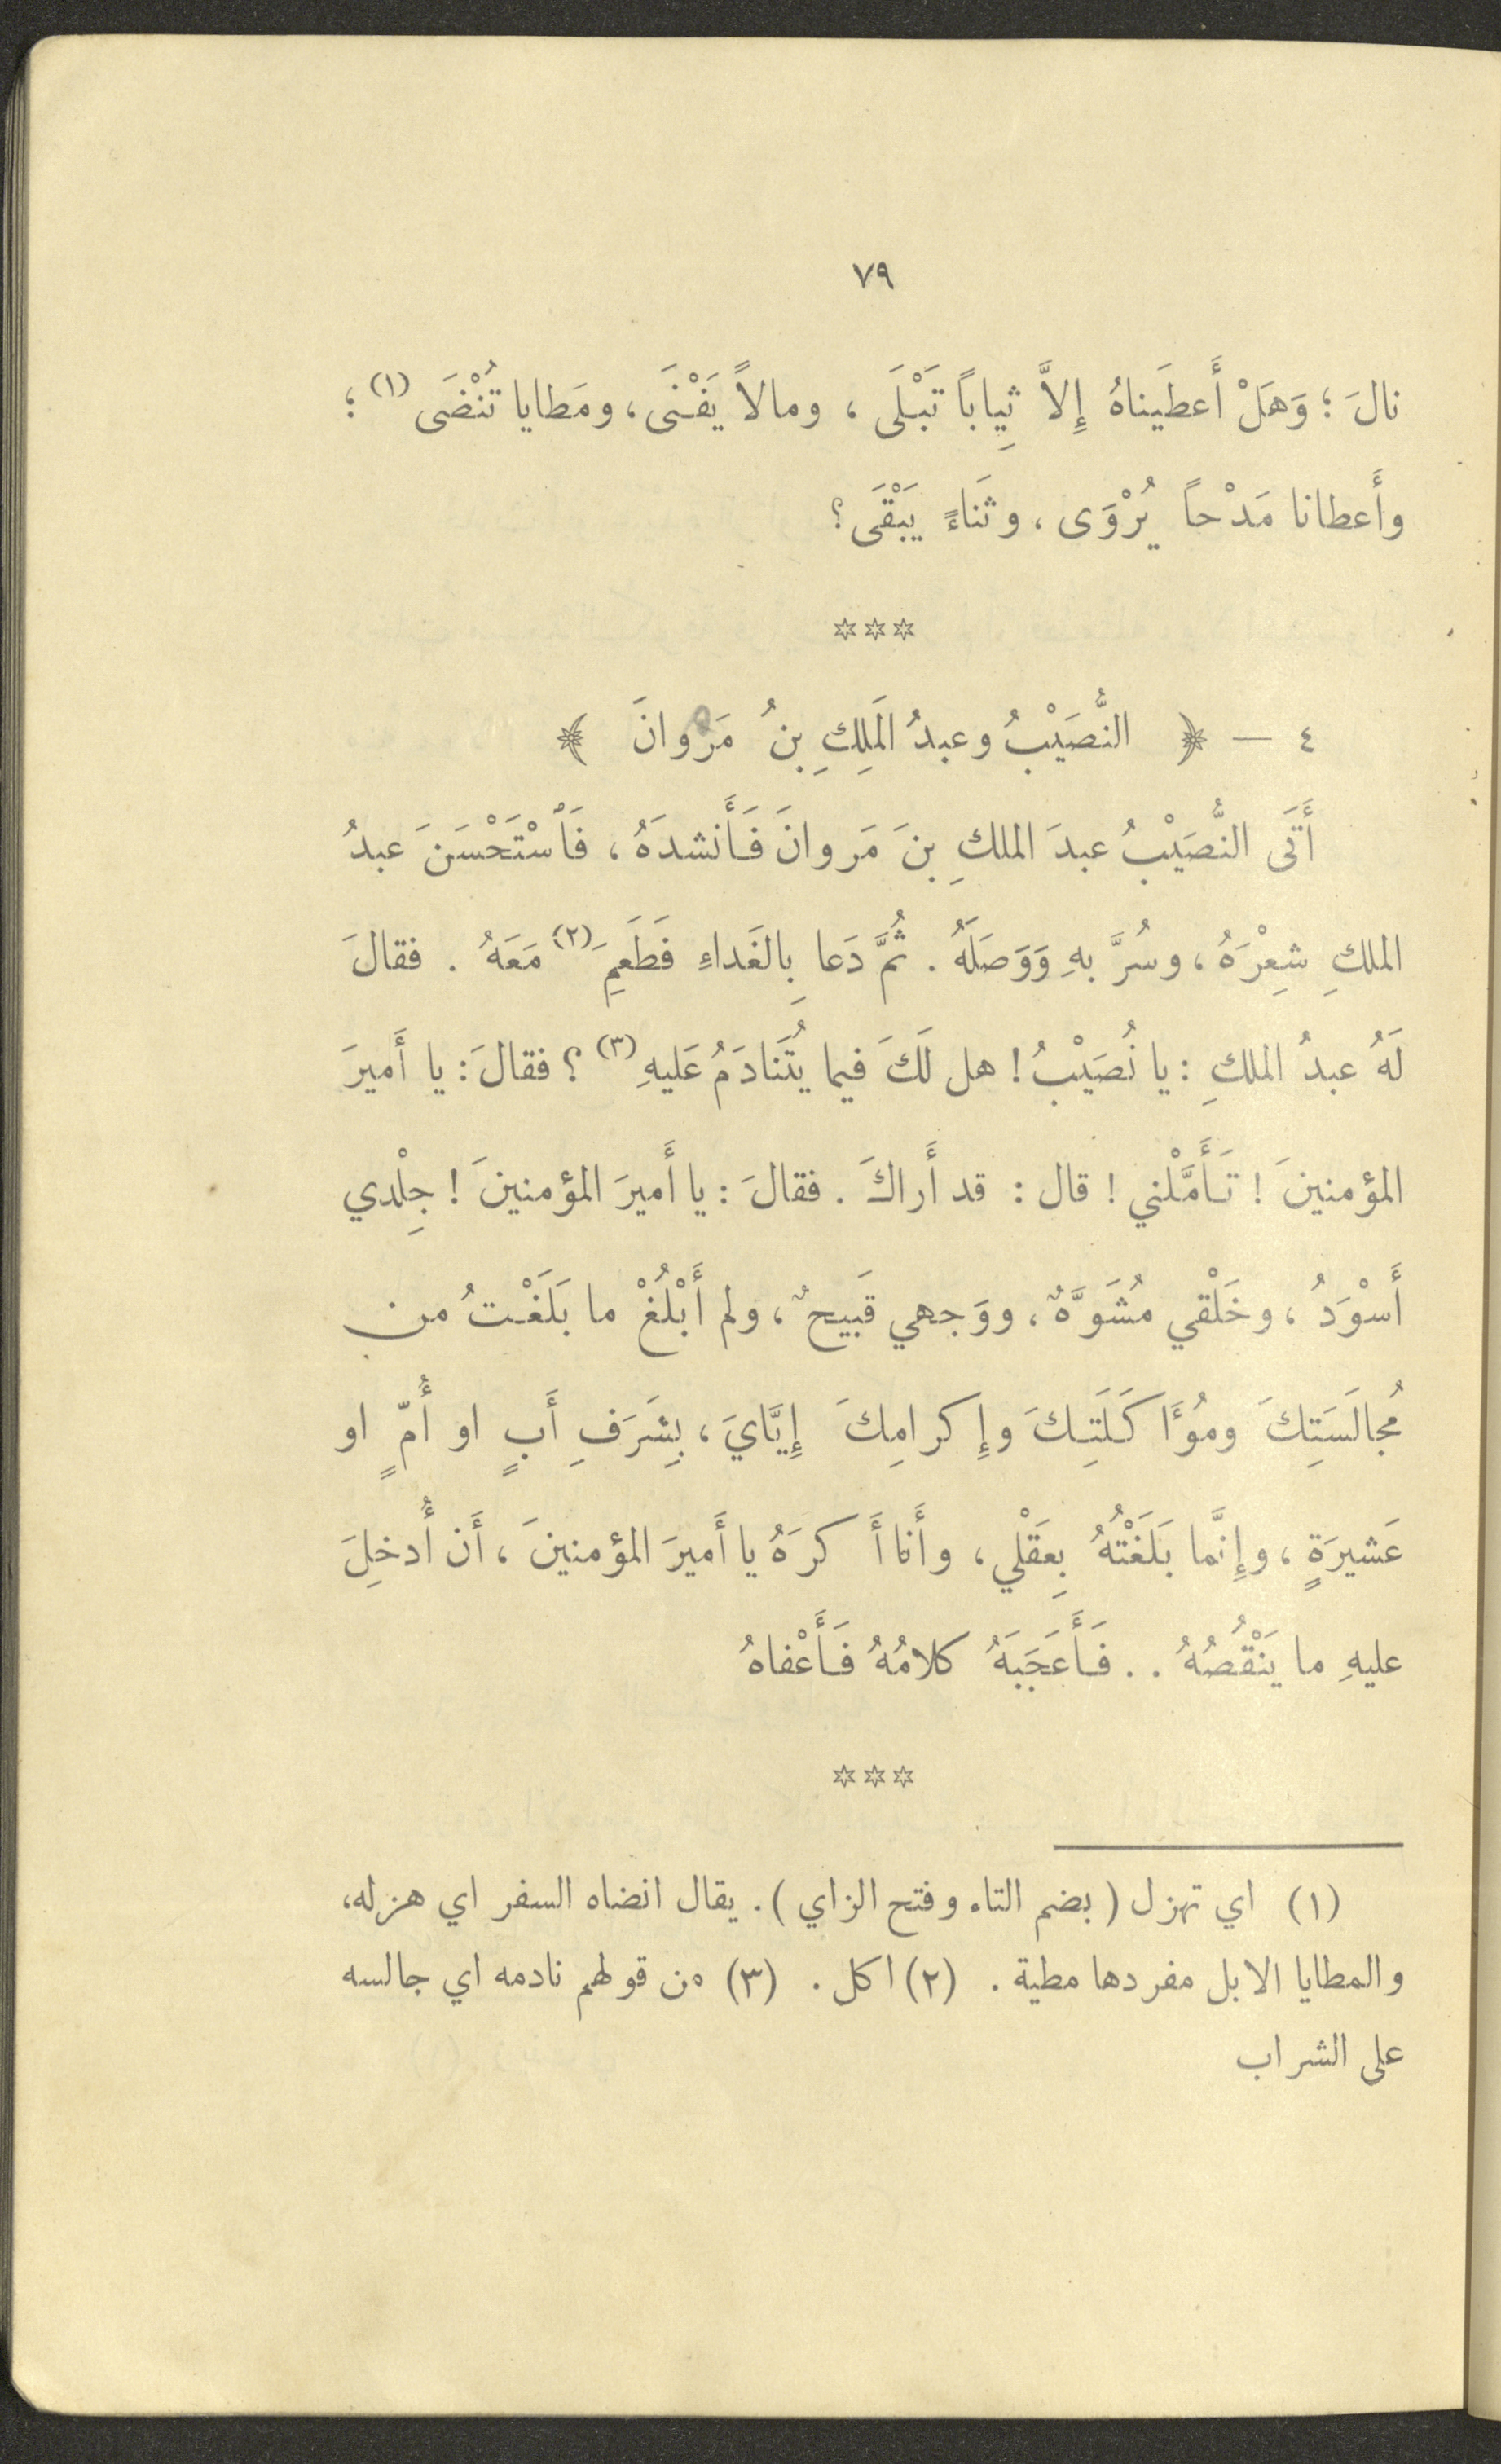 ٧٩
نالَ ؛ وَهَلْ أَعطَيناهُ إِلاَّ ثِياباً تَبْلَى ، ومالاً يَفْنَى ، ومَطايا تُنْضَى (١) ؛
وأَعطانا مَدْحاً يُرْوَى ، وثَناءً يَبْقَى ؟
***
٤ — ﴿ النُّصَيْبُ وعبدُ المَلِكِ بنُ مَرْوانَ ﴾
أَتَى النُّصَيْبُ عبدَ الملكِ بنَ مَروانَ فَأَنشدَهُ ، فَٱسْتَحْسَنَ عبدُ
الملكِ شِعِرْهُ ، وسُرَّ بهِ وَوَصَلَهُ . ثُمَّ دَعا بِالغَداءِ فَطَعِمَ (٢) مَعَهُ . فقالَ
لَهُ عبدُ الملكِ : يا نُصَيْبُ ! هل لَكَ فيما يُتَنادَمُ عَليهِ (٣) ؟ فقالَ : يا أَميرَ
المؤمنينَ ! تَأَمَّلْني ! قال : قد أَراكَ . فقالَ : يا أَميرَ المؤمنينَ ! جِلْدي
أَسْوَدُ ، وخَلْقي مُشَوَّهٌ ، ووَجهي قَبيحٌ ، ولم أَبْلُغْ ما بَلَغْتُ من
مُجالَسَتِكَ ومُؤَاكَلَتِكَ وإِكرامِكَ إِيَّايَ ، بِشَرَفِ أَبٍ او أُمٍّ او
عَشيرَةٍ ، وإِنَّما بَلَغْتُهُ بِعَقْلي ، وأَنا أَكرَهُ يا أَميرَ المؤمنينَ ، أَن أُدخِلَ
عليهِ ما يَنْقُصُهُ . . فَأَعَجَبَهُ كلامُهُ فَأَعْفاهُ
***
(١) اي تهزل ( بضم التاء وفتح الزاي ) . يقال انضاه السفر اي هزله،
والمطايا الابل مفردها مطية . (٢) اكل . (٣) من قولهم نادمه اي جالسه
على الشراب